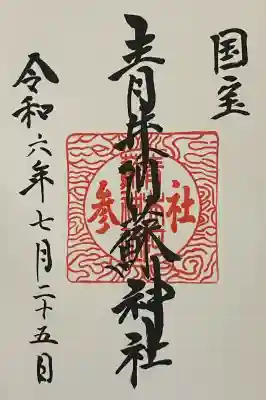 国宝
青井阿蘇神社
参社
令和六年七月二十五日